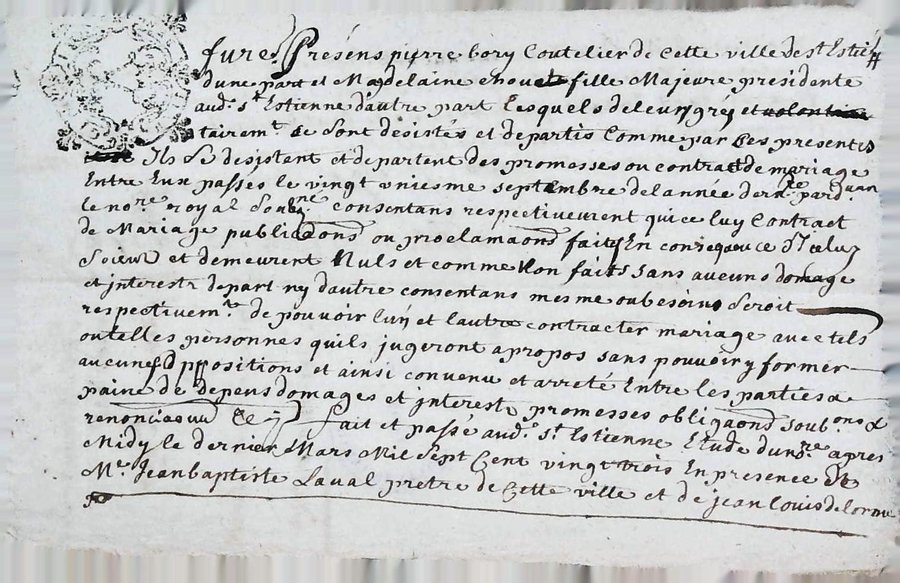 fure.t Présens pierre bory Coutelier de Cette ville de st Estie
dune part et Magdelaine fille Majeure presidente
aud.t s.t Estienne d'autre part Lesquels de leurs grés et volontai
tairem.t Se sont desistés et departis Comme par Ces presentes
Ils Se desistent et departent des promesses ou contract de mariage
Entre Eux passés le vingt uniesme septembre de lannée der.re pard.
le no.re royal Soub.né consentans respectivement qui ce luy Contract
de Mariage publicaons ou proclamaons faites En consequence d'Iceluy
Soient et demeurent Nuls et comme Non faits sans aucuns domage
et interestz de part ny dautre consentans mesme ou besoins Seroit
respectivem.t de pouvoir lun et lautre contracter mariage avec tels
ou telles personnes quils jugeront a propos sans pouvoir y former
aucunes Oppositions et ainsi convenu et arreté Entre les parties a
paine de depens domages et interestz promesses obligaons soub.ons &
renonciaons &c fait et passé aud.t s.t Estienne Etude dud no.re apres
Midy le dernier Mars Mil Sept Cent vingt trois En presence de
M.e Jean baptiste Laval pretre de Cette ville et de jean Louis delorme